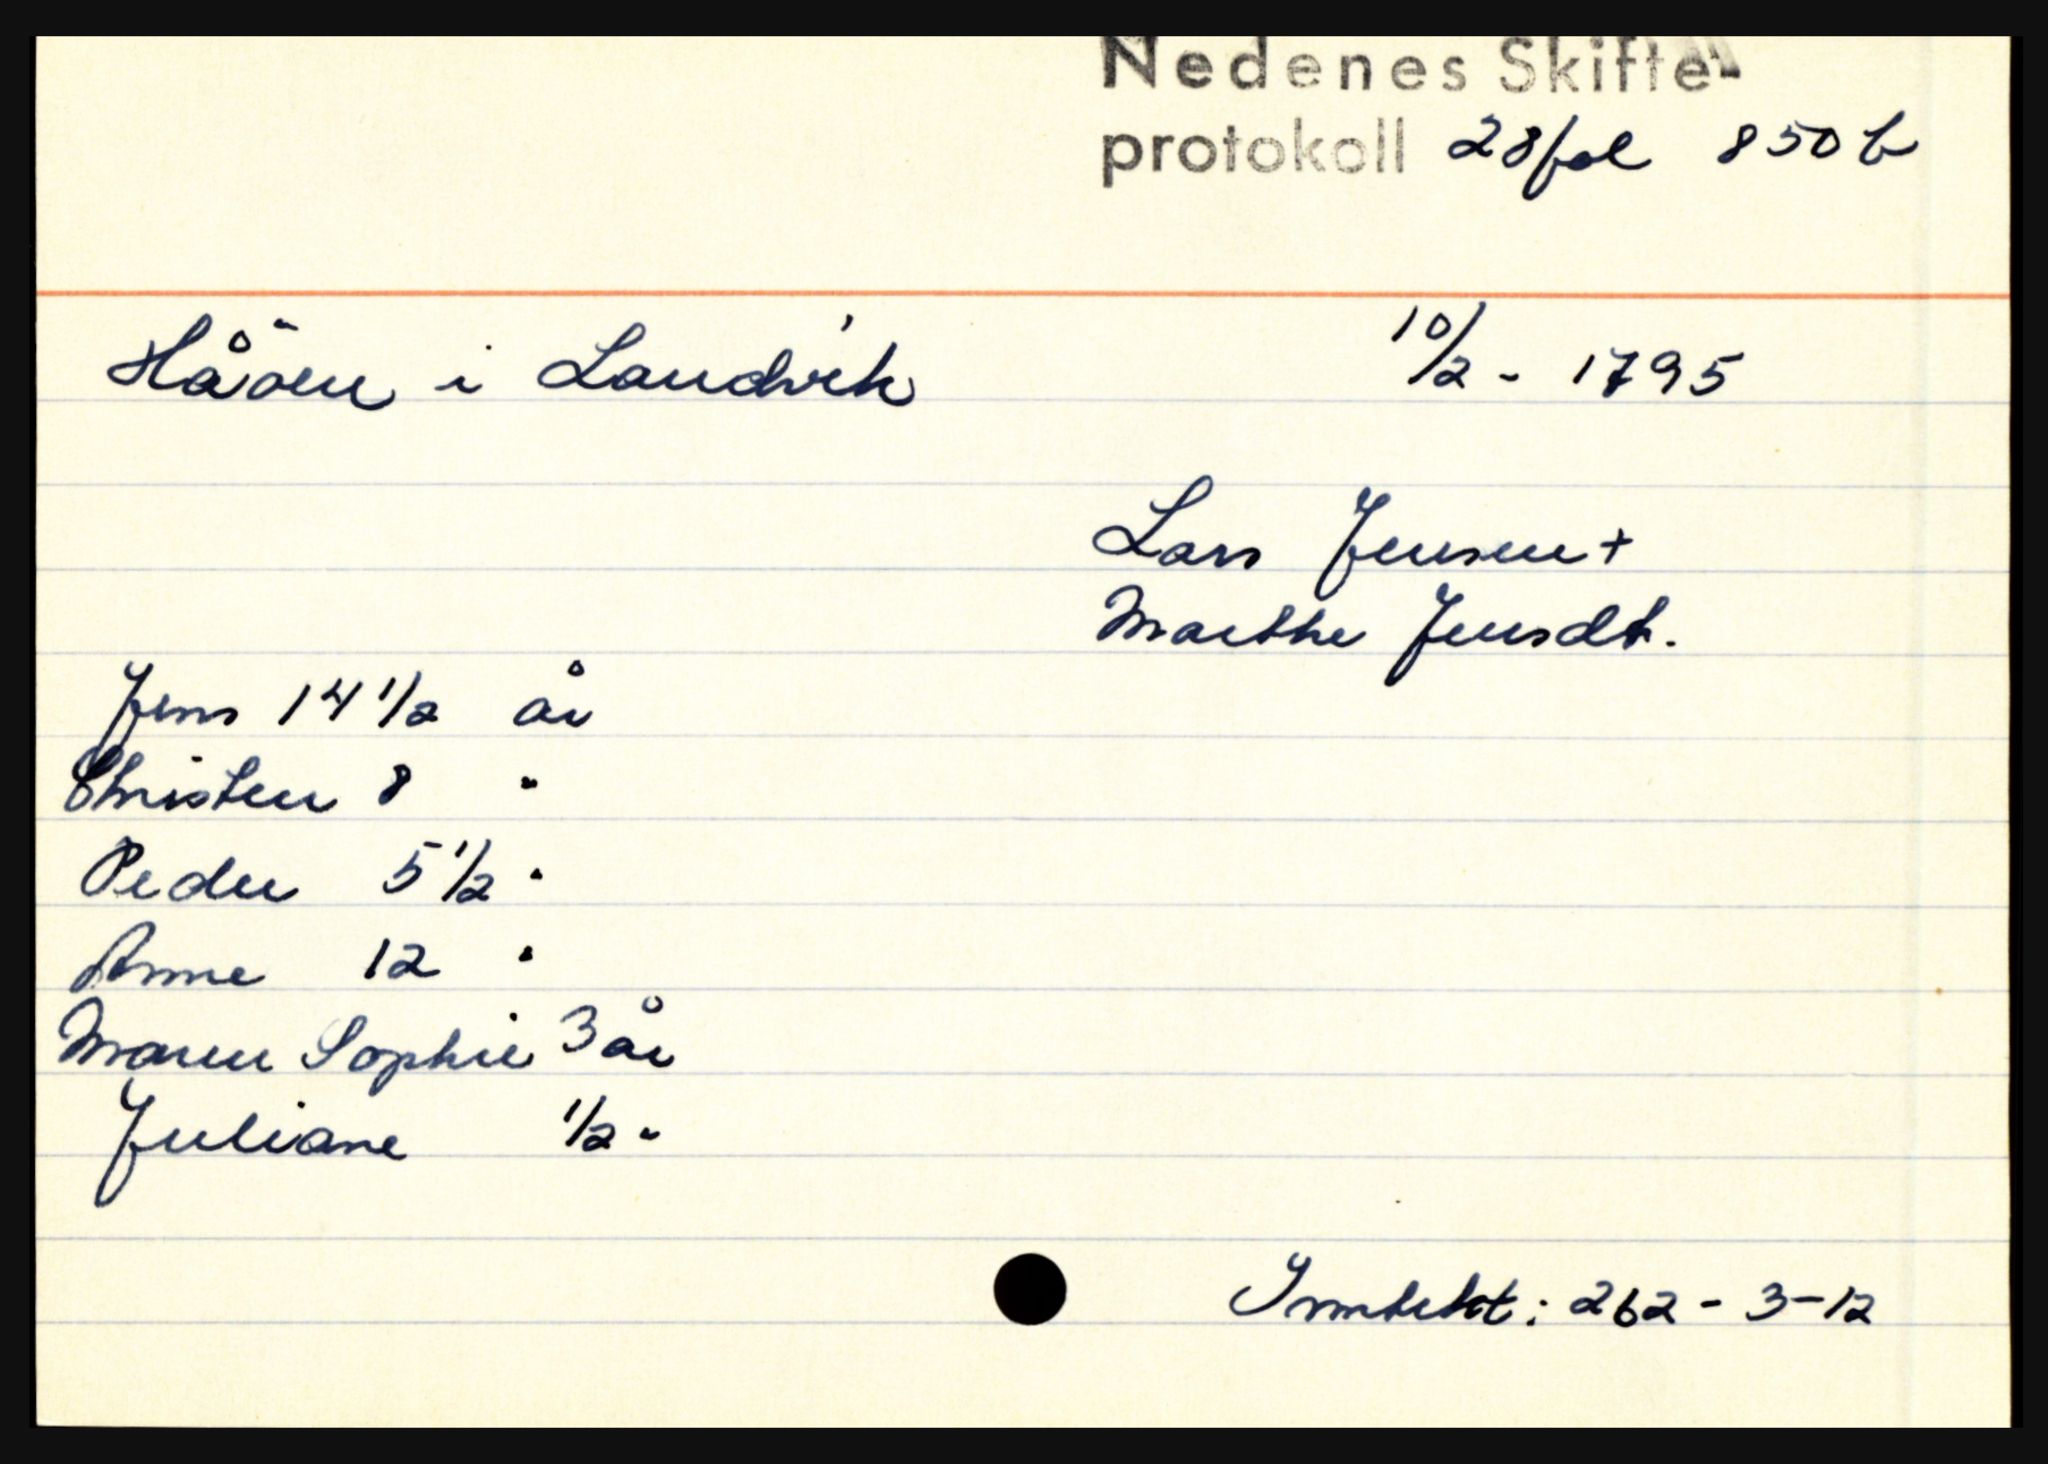 Nedenes Skifte-
protokoll 28 fol 850 b
Håöen i Landvik 10/2 - 1795
Lars Jensen +
Marthe Jensdt.
Jens 14 1/2 år
Christen 8 "
Peder 5 1/2 "
Anne 12 "
Maren Sophie 3 år
Juliane 1/2 "
Inntekt: 262 - 3 - 12